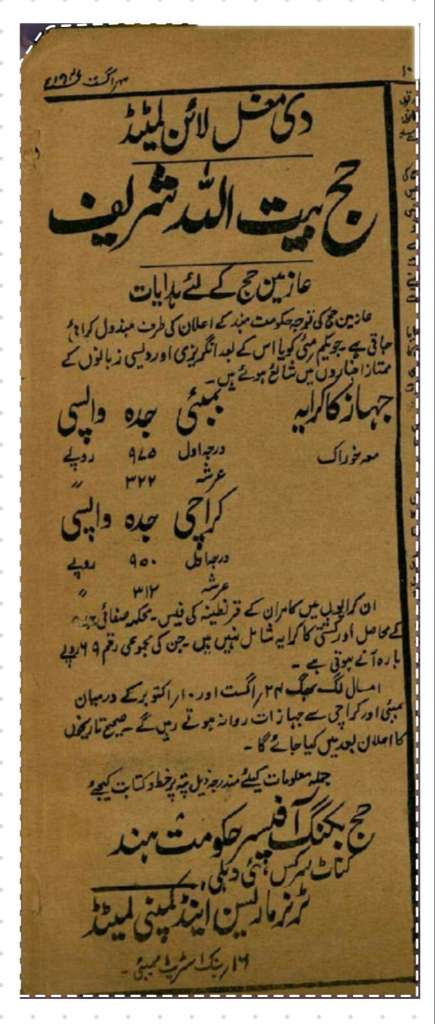 ۱۰
۴ اگست ۱۹۴۶ء
دی مغل لائن لمیٹڈ
حج بیت اللہ شریف
عازمین حج کے لئے ہدایات
عازمین حج کی توجہ حکومت ہند کے اعلان کی طرف مبذول کرائی
جاتی ہے۔ جو یکم مئی کو یا اس کے بعد انگریزی اور دیسی زبانوں کے
ممتاز اخباروں میں شائع ہوئے ہیں۔
جہاز کا کرایہ بمبئی جدہ واپسی
معہ خوراک درجہ اول ۹۷۵ روپے
عرشہ ۳۲۲ "
کراچی جدہ واپسی
درجہ اول ۹۵۰ روپے
عرشہ ۳۱۲ "
ان کرایوں میں کامران کے قرنطینہ کی فیس۔ محکمہ صفائی
کے محاصل اور کشتی کا کرایہ شامل نہیں ہیں۔ جن کی مجموعی رقم ۶۹ روپے
بارہ آنے ہوتی ہے۔
امسال لگ بھگ ۲۴ اگست اور ۱۰ اکتوبر کے درمیان
بمبئی اور کراچی سے جہازات روانہ ہوتے رہیں گے۔ صحیح تاریخوں
کا اعلان بعد میں کیا جائے گا۔
جملہ معلومات کیلئے مندرجہ ذیل پتہ پر خط و کتابت کیجئے
حج بکنگ آفیسر حکومت ہند
کناٹ سرکس نئی دہلی،
ٹرنر ماریسن اینڈ کمپنی لمیٹڈ
۱۶ بنک اسٹریٹ بمبئی۔